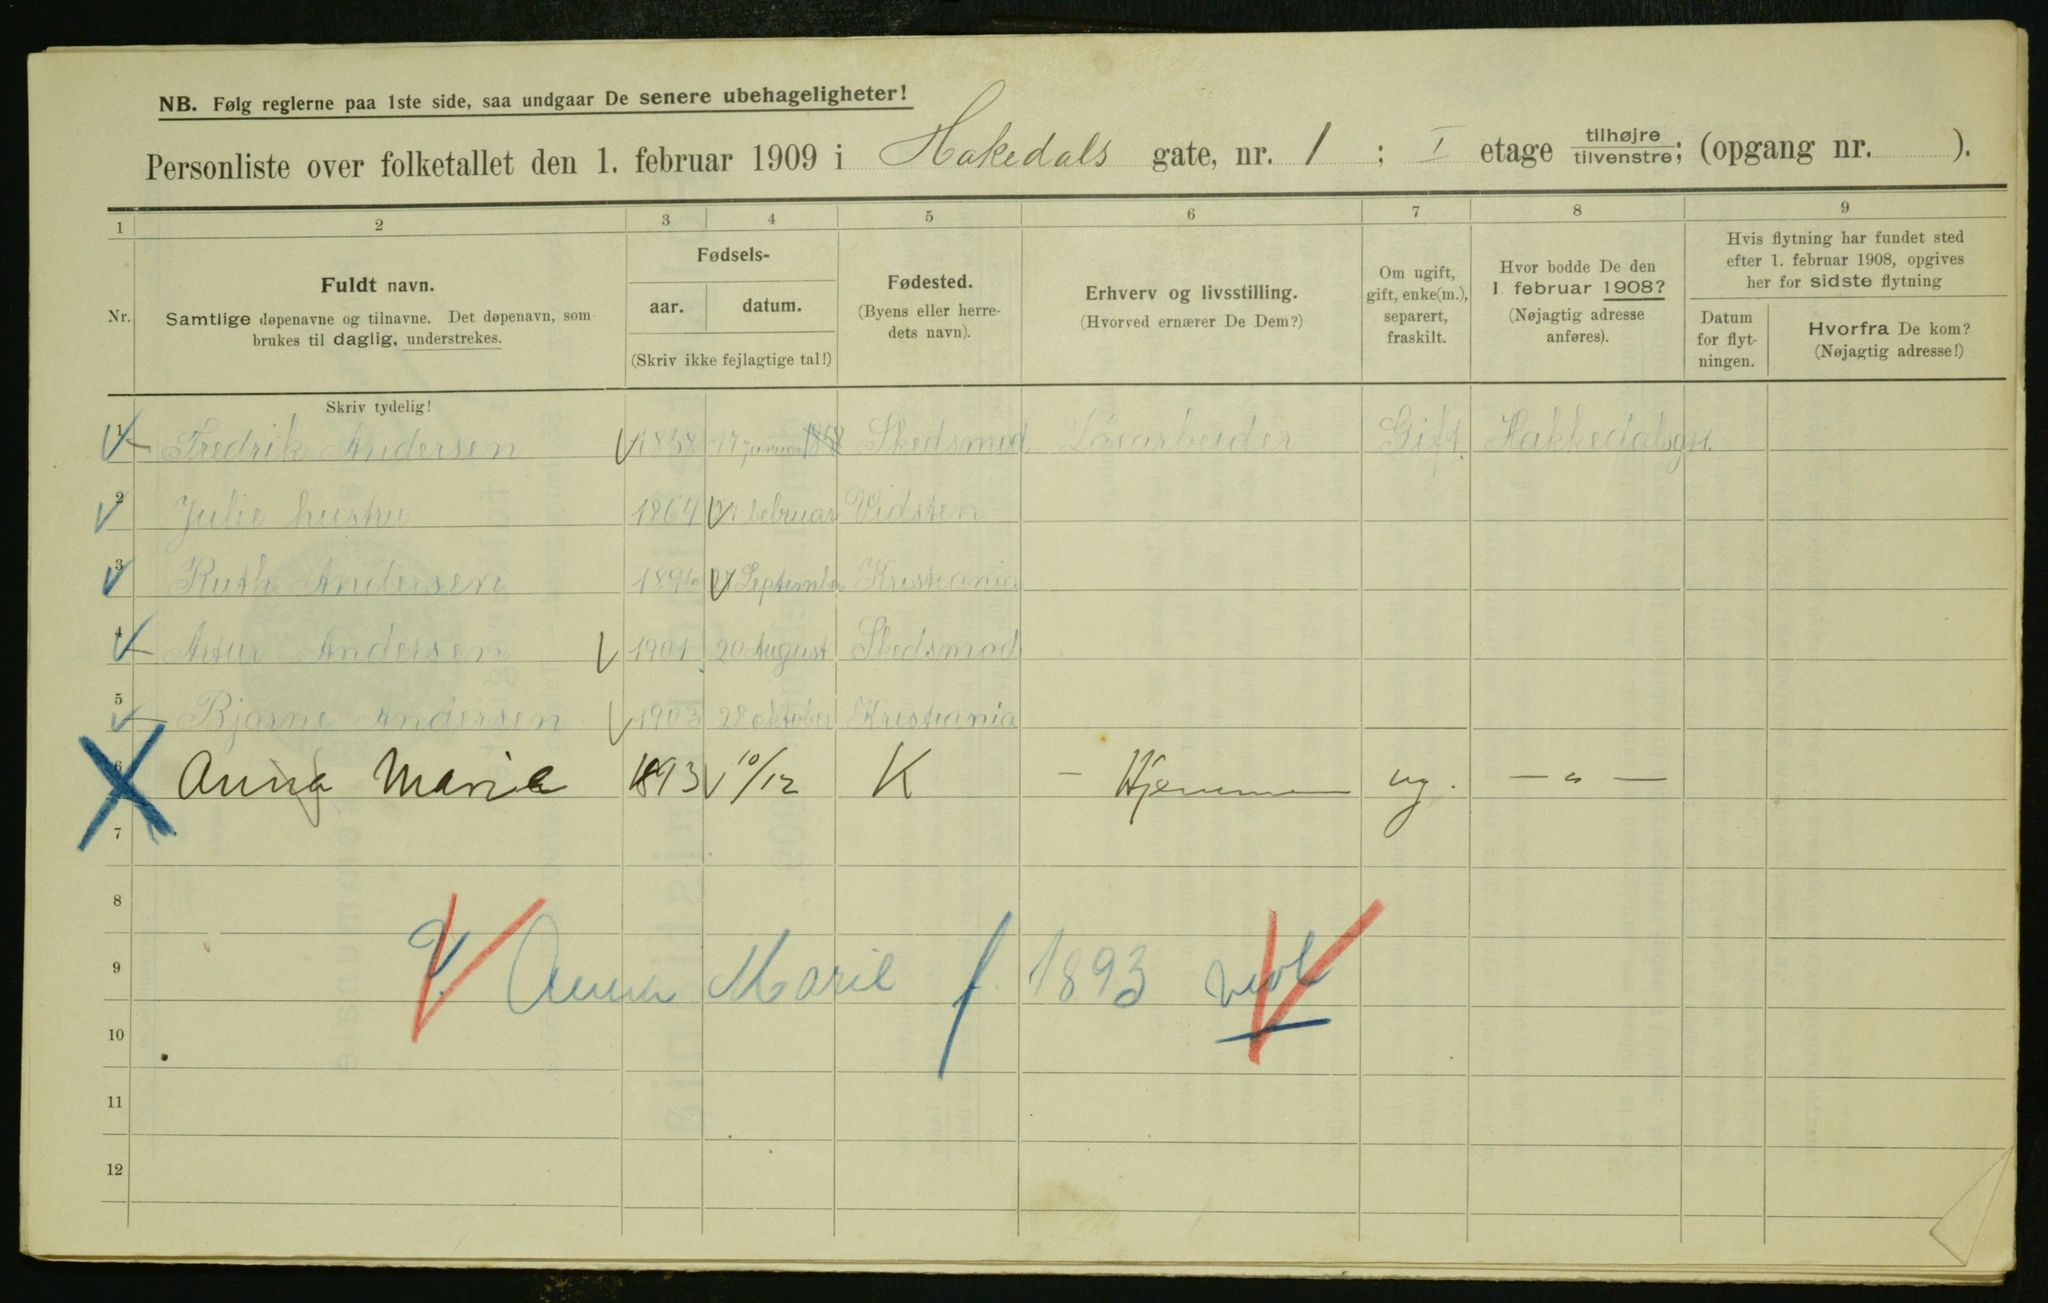 NB. Følg reglerne paa 1ste side, saa undgaar De senere ubehageligheter!
Personliste over folketallet den 1. februar 1909 i Hakedals gate, nr. 1 ; I etage tilhøjre/tilvenstre; (opgang nr. ).
1 2 3 4 5 6 7 8 9
Nr.
Fuldt navn.
Samtlige døpenavne og tilnavne. Det døpenavn, som
brukes til daglig, understrekes.
Fødsels-
aar. datum.
(Skriv ikke fejlagtige tal!)
Fødested.
(Byens eller herre-
dets navn).
Erhverv og livsstilling.
(Hvorved ernærer De Dem?)
Om ugift,
gift, enke(m.),
separert,
fraskilt.
Hvor bodde De den
1 februar 1908?
(Nøjagtig adresse
anføres).
Hvis flytning har fundet sted
efter 1. februar 1908, opgives
her for sidste flytning
Datum
for flyt-
ningen.
Hvorfra De kom?
(Nøjagtig adresse!)
Skriv tydelig!
1 Fredrik Andersen 1858 17 januar 1858 Skedsmod Løsarbeider Gift Hakkedalsgt.
2 Julie hustru 1864 februar Vidsten
3 Ruth Andersen 1896 September Kristiania
4 Artur Andersen 1901 20 August Skedsmod
5 Bjarne Andersen 1903 28 oktober Kristiania
6 Anna Marie 1893 10/12 K - Hjemme ug. — " —
7
8
9 Anna Marie f. 1893
10
11
12